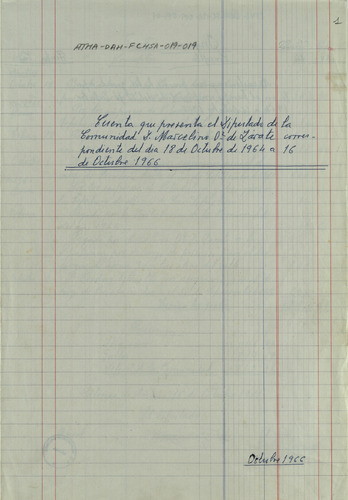 1
ATHA-DAH-FCHSA-019-019
Cuenta que presenta el Diputado de la
Comunidad D. Marcelino Dz. de Zárate corres-
pondiente del dia 18 de Octubre de 1964 a 16
de Octubre 1966
Octubre 1966